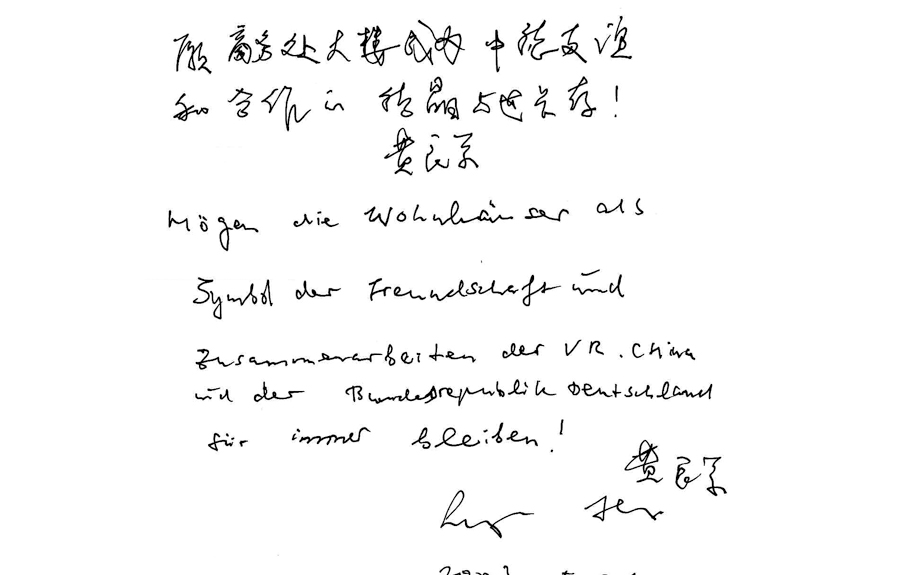 愿商务处大楼成为中德友谊
和合作的结晶与世长存!
费
Mögen die Wohnhäuser als
Symbol der Freundschaft und
Zusammenarbeiten der VR. China
und der Bundesrepublik Deutschland
für immer bleiben!
费